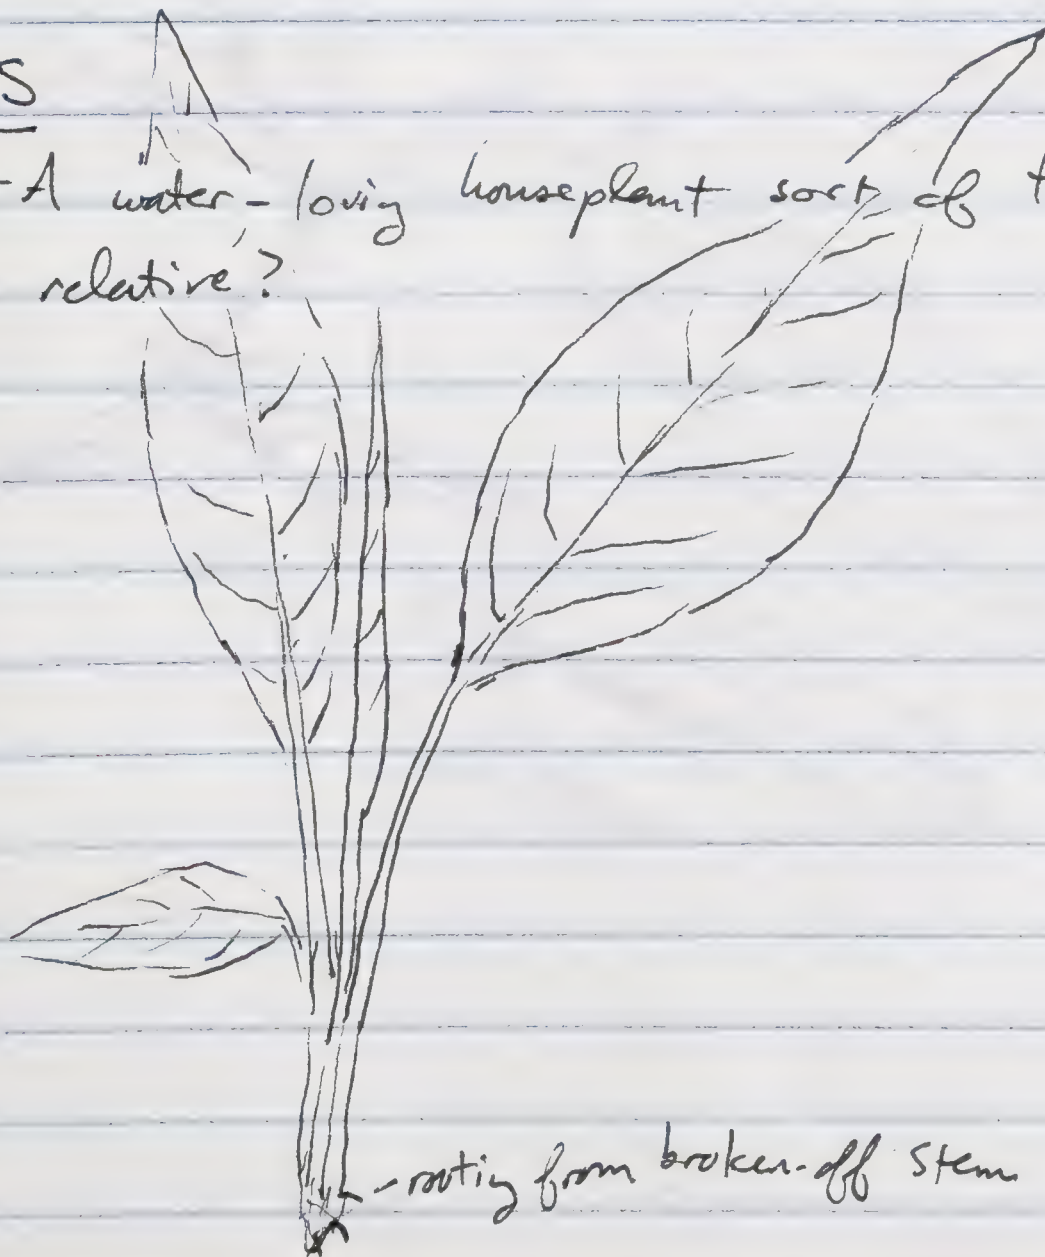 S
- A water-loving houseplant sort of t
relative?
- rooting from broken-off stem